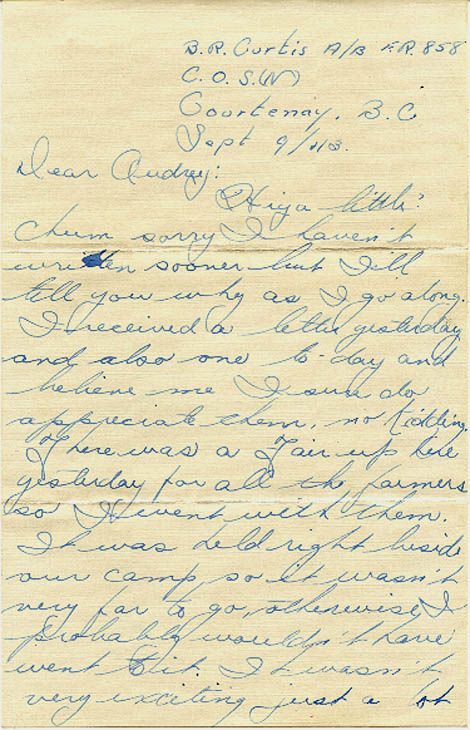 B.R. Curtis A/B F.R. 858
C.O.S.(N)
Courtenay, B.C
Sept 9/43.
Dear Audrey:
Hiya little?
Chum sorry I haven't
written sooner but I'll
tell you why as I go along.
I received a letter yesterday
and also one to-day and
believe me I sure do
appreciate them, no kidding.
There was a Fair up here
yesterday for all the farmers
so I went with them.
It was held right beside
our camp, so it wasn't
very far to go, otherwise I
probably wouldn't have
went to it. It wasn't
very exciting just a lot